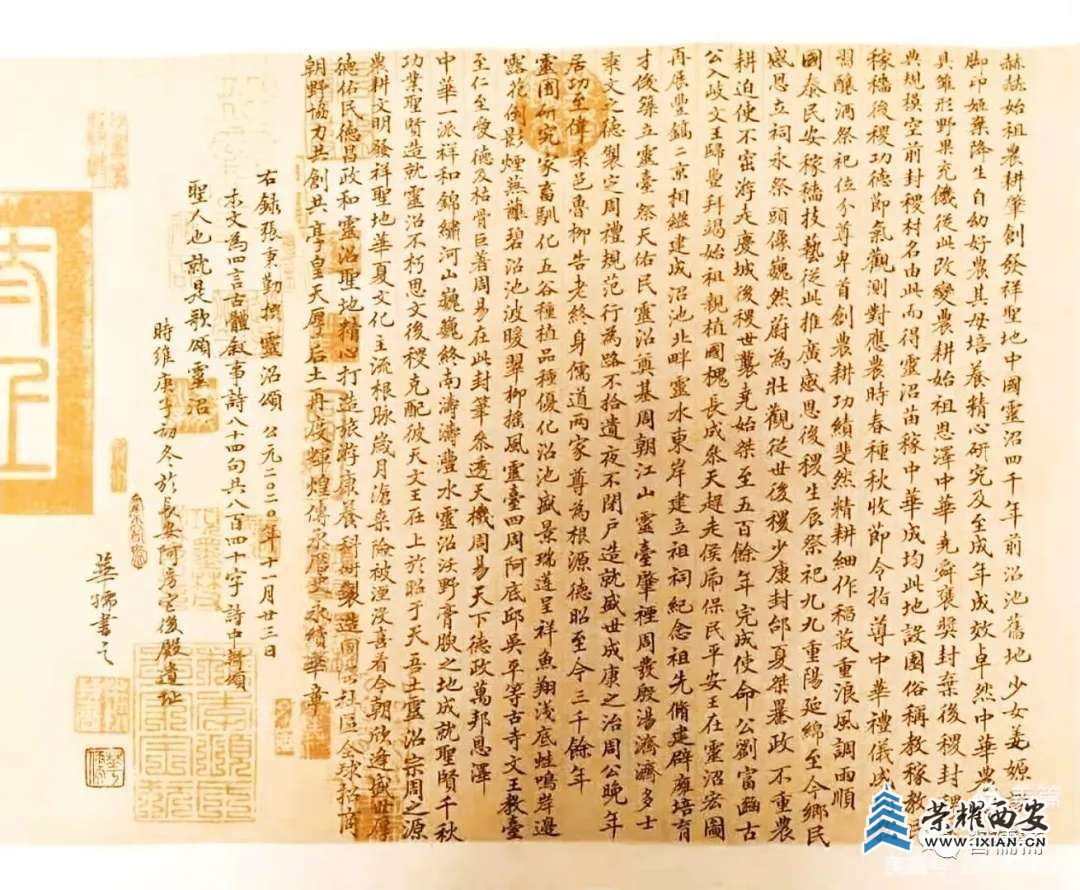 赫赫始祖農耕肇創發祥聖地中國靈沼四千年前沼池舊地少女姜嫄
脚印姬棄降生自幼好農其母培養精心研究及至成年成效卓然中華農
具雛形野果充饑從此改變農耕始祖恩澤中華堯舜褒獎封棄後稷封稷
典規模空前封稷村名由此而得靈沼苗稼中華成均此地設園俗稱教稼教
稼穡後稷功德節氣觀測對應農時春種秋收節令指導中華禮儀
習釀酒祭祀位分尊卑首創農耕功績斐然精耕細作稻菽重浪風調雨順
國泰民安稼穡技藝從此推廣感恩後稷生辰祭祀九九重陽延綿至今鄉民
感恩立祠永祭頭像巍然蔚為壯觀從世後稷少康封邰夏桀暴政不重農
耕迫使不密將走慶城後稷世襲堯始桀至五百餘年完成使命公劉富豳古
公入岐文王歸豐拜謁始祖親植國槐長成參天趕走侯扁保民平安王在靈沼宏圖
再展豐鎬二京相繼建成沼池北畔靈水東岸建立祖祠紀念祖先脩建辟廱培育
才俊築立靈臺祭天佑民靈沼奠基周朝江山靈臺肇禋周發殷湯濟濟多士
秉文之德製定周禮規范行為路不拾遺夜不閉户造就盛世成康之治周公晚年
居功至偉采邑魯柳告老終身儒道兩家尊為根源德昭至今三千餘年
靈囿研究家畜馴化五谷種植品種優化沼池盛景瑞蓮呈祥魚翔淺底蛙鳴岸邊
雲花倒影煙蕪蘸碧沼池波暖翠柳摇風靈臺四周阿底邱吴平等古寺文王教臺
至仁至愛德及枯骨巨著周易在此封筆參透天機周易天下德政萬邦恩澤
中華一派祥和錦繡河山巍巍終南濤濤灃水靈沼沃野膏腴之地成就聖賢千秋
功業聖賢造就靈沼不朽思文後稷克配彼天文王在上於昭于天吾土靈沼宗周之源
農耕文明發祥聖地華夏文化主流根脉歲月滄桑險被湮没喜看今朝欣逢盛世厚
德佑民德昌政和靈沼聖地精心打造旅游康養科研製造園社區全球招商
朝野協力共創共享皇天厚土再度輝煌傳承歷史永續華章
右録張秉勤撰靈沼頌 公元二〇二〇年十一月廿三日
本文為四言古體叙事詩八十四句共八百四十字詩中
聖人也就是歌頌靈沼
時維庚子初冬於長安阿房宫後殿遺址
華儒書之
荣耀西安
WWW.IXIAN.CN